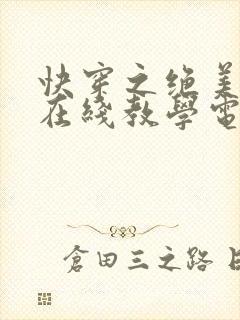 快穿之绝美
在线教學電
倉田三之路